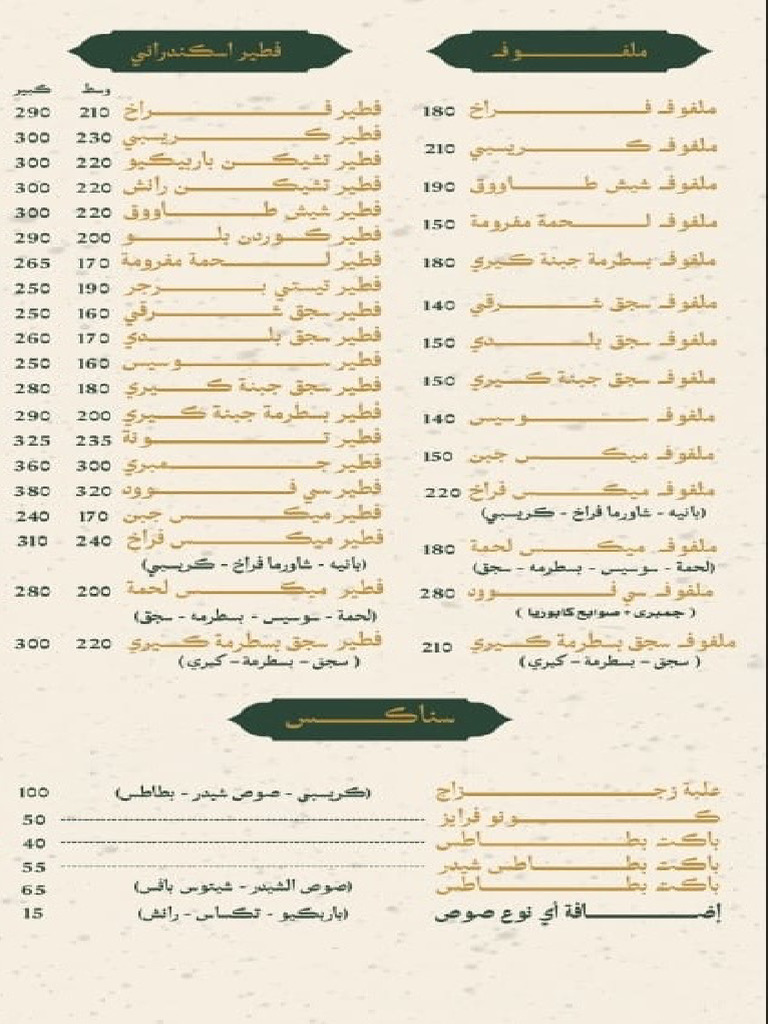 ملفوف
ملفوف فراخ 180
ملفوف كريسبي 210
ملفوف شيش طاووق 190
ملفوف لحمة مفرومة 150
ملفوف بسطرمة جبنة كيري 180
ملفوف سجق شرقي 140
ملفوف سجق بلدي 150
ملفوف سجق جبنة كيري 150
ملفوف سوسيس 140
ملفوف ميكس جبن 150
ملفوف ميكس فراخ 220
(بانيه - شاورما فراخ - كريسبي)
ملفوف ميكس لحمة 180
(لحمة - سوسيس - بسطرمه - سجق)
ملفوف سي فوود 280
(جمبرى + صوابع كابوريا)
ملفوف سجق بسطرمة كيري 210
(سجق - بسطرمة - كيري)
فطير اسكندراني
وسط كبير
فطير فراخ 210 290
فطير كريسبي 230 300
فطير تشيكن باربيكيو 220 300
فطير تشيكن رانش 220 300
فطير شيش طاووق 220 300
فطير كوردن بلو 200 290
فطير لحمة مفرومة 170 265
فطير تيستي برجر 190 250
فطير سجق شرقي 160 250
فطير سجق بلدي 170 260
فطير سوسيس 160 250
فطير سجق جبنة كيري 180 280
فطير بسطرمة جبنة كيري 200 290
فطير تونة 235 325
فطير جمبري 300 360
فطير سي فوود 320 380
فطير ميكس جبن 170 240
فطير ميكس فراخ 240 310
(بانيه - شاورما فراخ - كريسبي)
فطير ميكس لحمة 200 280
(لحمة - سوسيس - بسطرمه - سجق)
فطير سجق بسطرمة كيري 220 300
(سجق - بسطرمة - كيري)
سناكس
علبة زجزاج (كريسبي - صوص شيدر - بطاطس) 100
كونو فرايز 50
باكت بطاطس 40
باكت بطاطس شيدر 55
باكت بطاطس (صوص الشيدر - شيتوس بافس) 65
إضافة أي نوع صوص (باربكيو - تكساس - رانش) 15